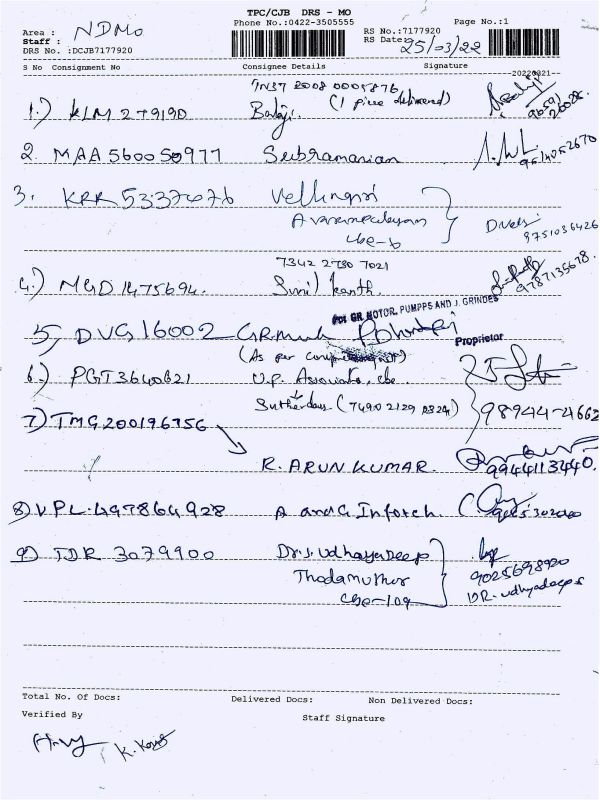 TPC/CJB DRS - MO
Phone No.:0422-3505555
Page No.:1
Area : NDMO
Staff :
DRS No. :DCJB7177920
RS No.:7177920
RS Date: 25/03/22
S No Consignment No Consignee Details Signature
--20220321--
TN37 2008 0005876
1.) KLM 279190 Balaji. (1 piece delivered)
2. MAA 560050977 Subramanian
3. KRR 5337076 Vellingiri
cbe-6
9751036426
7342 2780 7021
4.) MGD 1475694. Sunil kanth.
9787135678.
For GR MOTOR, PUMPPS AND J. GRINDES
5, DVG 16002
Proprietor
(As per
6.) PGT3640621 V.P. Associate, cbe.
(7490 2129 2324) 98944-4662
7) TMG200196756
R. ARUN KUMAR. 9944113440.
8) VPL 497864928 A and G Infotch.
9) TDR 3079900 Dr.S. UdhayaDeep
Thodamuthur
cbe-109
9025698920
DR. Udhyadeep s
Total No. Of Docs: Delivered Docs: Non Delivered Docs:
Verified By Staff Signature